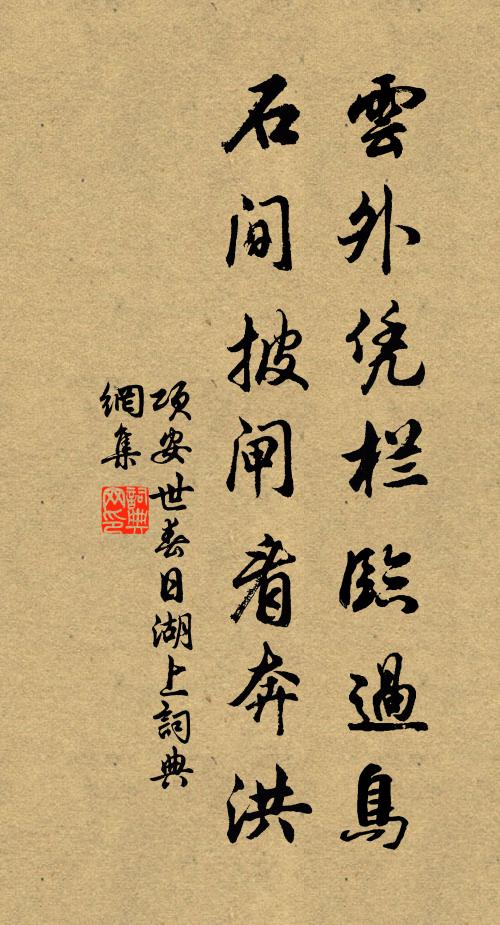 雲外凭栏臨過鳥
石间披闸看奔洪
项安世春日湖上詞典
網集
詞典
网印